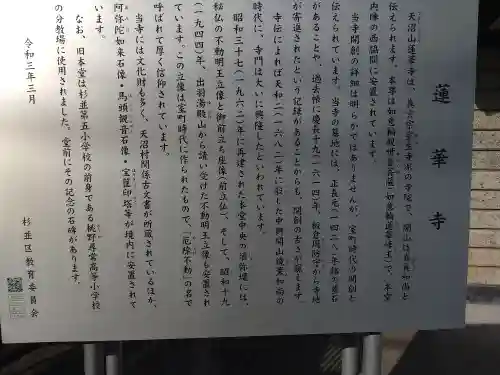 蓮華寺
天沼山蓮華寺は、真言宗室生寺派の寺院で、開山は良典和尚と
伝えられます。本尊は如意輪観世音菩薩
内陣の西脇間に安置されています。
当寺開創の詳細は明らかではありませんが、室町時代の開創と
伝えられています。当寺の墓地には、
があることや、過去帳に慶長十九（一六一四）年、板倉周防守から寺地
が寄進されたという記録があることからも、開創の古さが窺えます。
寺伝によれば天和二（一六八二）年に寂した中興開山
時代に、寺門は大いに興隆したといわれています。
昭和三十七（一九六二）年に再建された本堂中央の須弥壇には、
秘仏の不動明王立像と御前立ち座像（前立仏）、そして、昭和十九
（一九四四）年、出羽湯殿山から請い受けた不動明王立像も安置され
ています。この立像は室町時代に作られたもので、「厄除不動」の名で
呼ばれて厚く信仰されています。
当寺には文化財も多く、天沼村関係古文書が所蔵されているほか、
阿弥陀如来石像・馬頭観音石像・宝篋印塔等が境内に安置されて
います。
なお、旧本堂は杉並第五小学校の前身である桃野尋常高等小学校
の分教場に使用されました。堂前にその記念の石碑があります。
令和三年三月
杉並区教育委員会